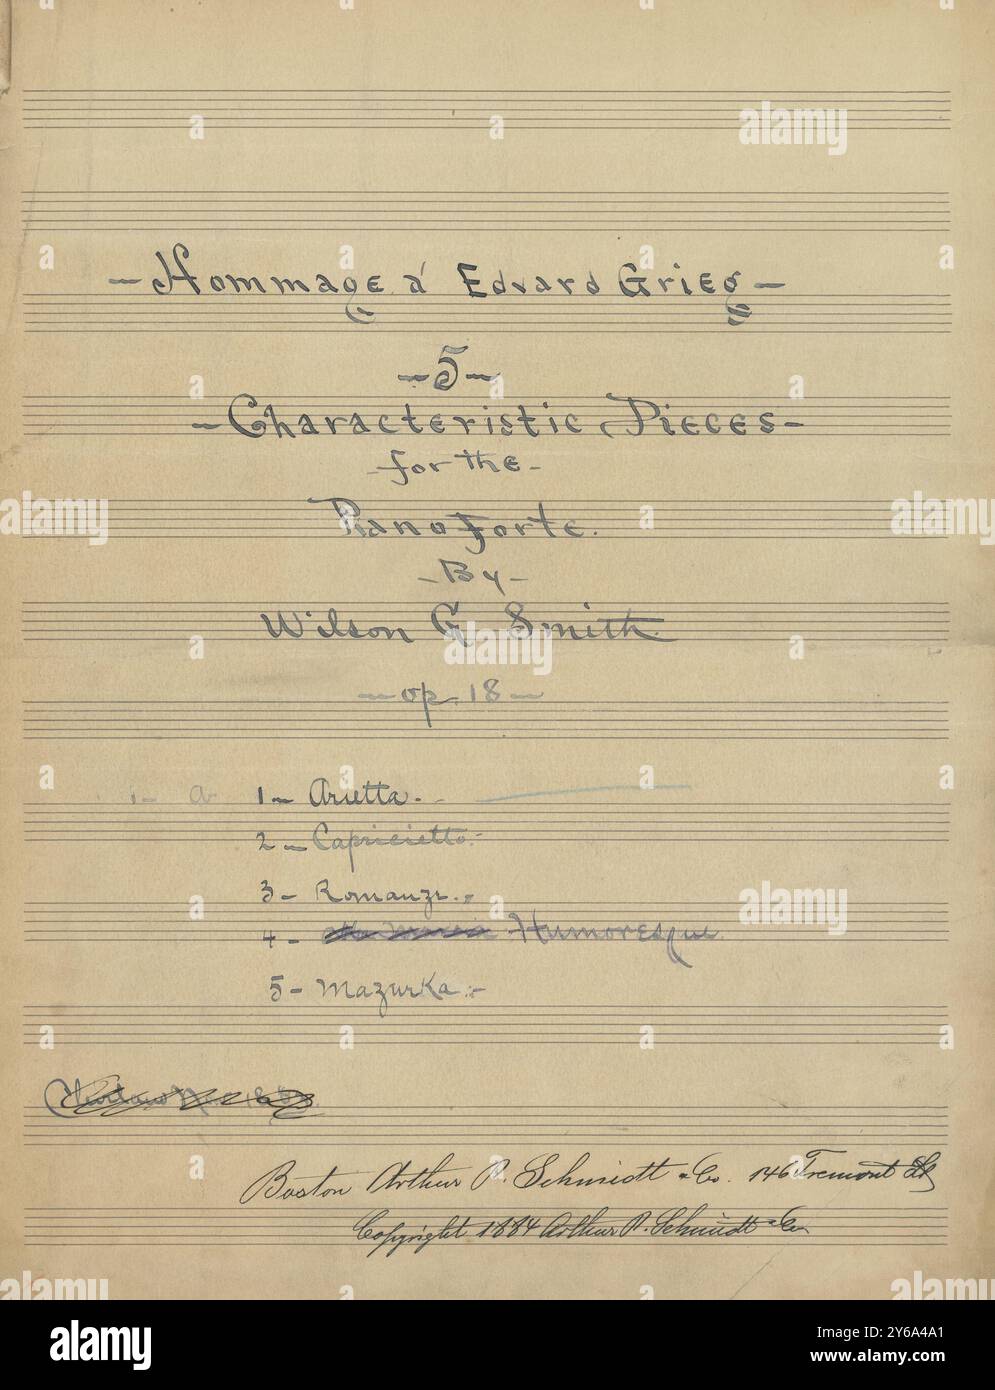 - Hommage á Edvard Grieg -
- 5 -
- Characteristic Pieces -
- for the -
Piano Forte.
- By -
Wilson G Smith.
- op. 18 -
1 - a 1 - Arietta. -
2 - Capricietto. -
3 - Romanze. -
4 - Humoresque.
5 - Mazurka. -
Boston Arthur P. Schmidt & Co. 146 Tremont St
Copyright 1884 Arthur P. Schmidt & Co
alamy
alamy
Image ID: 2Y6A4A1
www.alamy.com